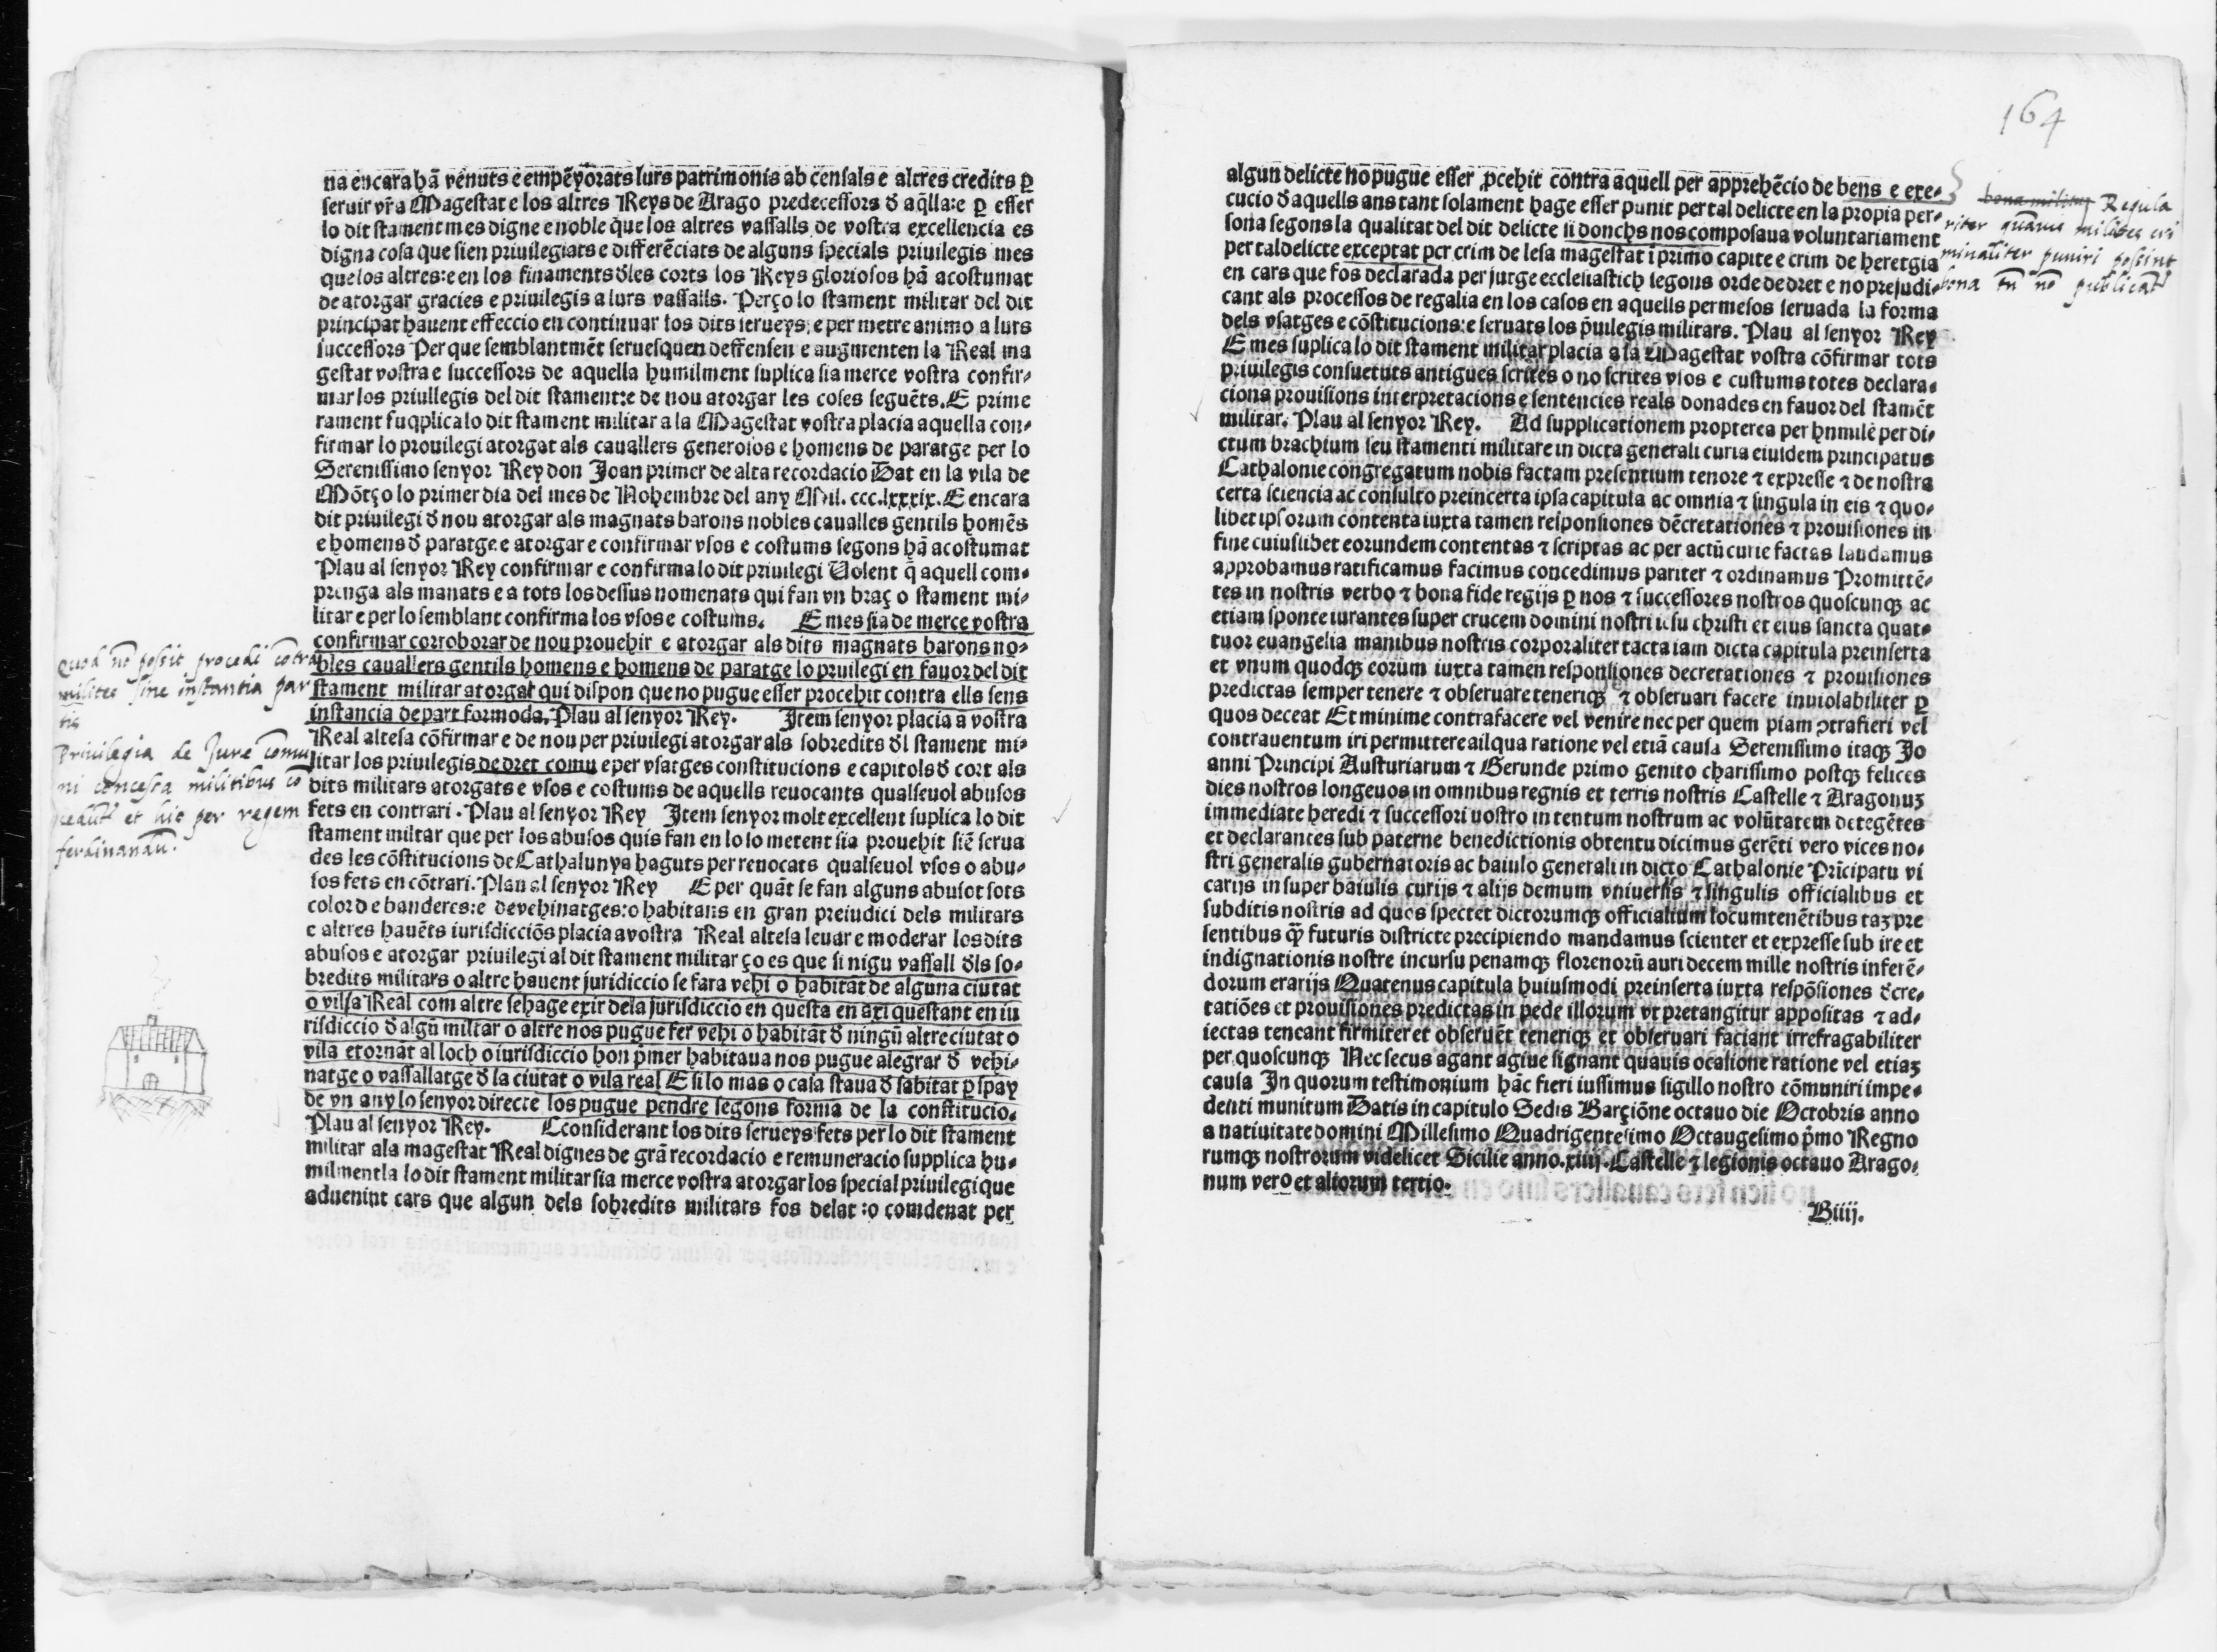 na encara hā venuts e empēyorats lurs patrimonis ab censals e altres credits ꝑ
seruir vr̄a Magestat e los altres Reys de Arago predecessors đ aq̄lla:e ꝑ esser
lo dit stament mes digne e noble que los altres vassalls de vostra excellencia es
digna cosa que sien priuilegiats e differēciats de alguns specials priuilegis mes
que los altres:e en los finaments đles corts los Reys gloriosos hā acostumat
de atorgar gracies e priuilegis a lurs vassalls. Perço lo stament militar del dit
principat hauent effeccio en continuar los dits serueys, e per metre animo a lurs
successors Per que semblantmēt seruesquen deffensen e augmenten la Real ma
gestat vostra e successors de aquella humilment suplica sia merce vostra confir-
mar los priullegis del dit stament:e de nou atorgar les coses seguēts. E prime
rament fuqplica lo dit stament militar a la Magestat vostra placia aquella con-
firmar lo prouilegi atorgat als cauallers generosos e homens de paratge per lo
Serenissimo senyor Rey don Joan primer de alta recordacio Dat en la vila de
Mōtço lo primer dia del mes de Nohembre del any Mil. ccc.lxxxix. E encara
dit priuilegi đ nou atorgar als magnats barons nobles caualles gentils homēs
e homens đ paratge e atorgar e confirmar vsos e costums segons hā acostumat
Plau al senyor Rey confirmar e confirma lo dit priuilegi Volent q̄ aquell com-
prenga als manats e a tots los dessus nomenats qui fan vn braç o stament mi-
litar e per lo semblant confirma los vsos e costums. E mes sia de merce vostra
confirmar corroborar de nou prouehir e atorgar als dits magnats barons no-
bles cauallers gentils homens e homens de paratge lo pruilegi en fauor del dit
stament militar atorgat qui dispon que no pugue esser procehit contra ells sens
instancia de part formoda. Plau al senyor Rey. Item senyor placia a vostra
Real altesa cōfirmar e de nou per priuilegi atorgar als sobredits đl stament mi-
litar los priuilegis de dret comu e per vsatges constitucions e capitols đ cort als
dits militars atorgats e vsos e costums de aquells reuocants qualseuol abusos
fets en contrari. Plau al senyor Rey Item senyor molt excellent suplica lo dit
stament miltar que per los abusos quis fan en lo lo metent sia prouehit siē serua
des les cōstitucions de Cathalunya haguts per reuocats qualseuol vsos o abu-
sos fets en cōtrari. Plau al senyor Rey E per quāt se fan alguns abusot sots
color de banderes:e de vehinatges:o habitans en gran preiudici dels militars
e altres hauēts iurisdicciōs placia a vostra Real altesa leuar e moderar los dits
abusos e atorgar priuilegi al dit stament militar ço es que si nigu vassall đls so-
bredits militars o altre hauent juridiccio se fara vehi o habitāt de alguna ciutat
o vilsa Real com altre se hage exir dela jurisdiccio en questa en axi questant en iu
risdiccio đ algū miltar o altre nos pugue fer vehi o habitāt đ ningū altre ciutat o
vila e tornāt al loch o iurisdiccio hon p̄mer habitaua nos pugue alegrar đ vehi-
natge o vassallatge đ la ciutat o vila real E si lo mas o casa staua đ sabitat ꝑ spay
de vn any lo senyor directe los pugue pendre segons forma de la constitucio.
Plau al senyor Rey. Cconsiderant los dits serueys fets per lo dit stament
militar ala magestat Real dignes de grā recordacio e remuneracio supplica hu-
milmentla lo dit stament militar sia merce vostra atorgar los special priuilegi que
aduenint cars que algun dels sobredits militars fos delat :o comdenat per
Quod nō possit procedi cōtra
milites sine instantia par
tis
Priuilegia de Jure comu
ni concessa militibus cō
cedūt et hic per regem
ferdinandū.
164
algun delicte no pugue esser ꝓcehit contra aquell per apprehēcio de bens e exe-
cucio đ aquells ans tant solament hage esser punit per tal delicte en la propia per-
sona segons la qualitat del dit delicte si donchs nos composaua voluntariament
per tal delicte exceptat per crim de lesa magestat i primo capite e crim de heretgia
en cars que fos declarada per jutge ecclesiastich segons orde de dret e no prejudi-
cant als processos de regalia en los casos en aquells permesos seruada la forma
dels vsatges e cōstitucions:e seruats los p̄uilegis militars. Plau al senyor Rey
E mes suplica lo dit stament militar placia a la Magestat vostra cōfirmar tots
priuilegis consuetuts antigues scrites o no scrites vsos e custums totes declara-
cions prouisions interpretacions e sentencies reals donades en fauor del stamēt
militar. Plau al senyor Rey. Ad supplicationem propterea per hnmilē per di-
ctum brachium seu stamenti militare in dicta generali curia eiusdem principatus
Cathalonie congregatum nobis factam presentium tenore ⁊ expresse ⁊ de nostra
certa sciencia ac consulto preincerta ipsa capitula ac omnia ⁊ singula in eis ⁊ quo-
libet ipsorum contenta iuxta tamen responsiones dēcretationes ⁊ prouisiones in
fine cuiuslibet eorundem contentas ⁊ scriptas ac per actū curie factas laudamus
approbamus ratificamus facimus concedimus pariter ⁊ ordinamus Promittē-
tes in nostris verbo ⁊ bona fide regijs ꝑ nos ⁊ successores nostros quoscunqȝ ac
etiam sponte iurantes super crucem domini nostri iesu christi et eius sancta quat-
tuor euangelia manibus nostris corporaliter tacta iam dicta capitula preinserta
et vnum quodqȝ eorum iuxta tamen responsiones decretationes ⁊ prouisiones
predictas semper tenere ⁊ obseruare teneriqȝ ⁊ obseruari facere inuiolabiliter ꝑ
quos deceat Et minime contrafacere vel venire nec per quem piam ↄtrafieri vel
contrauentum iri permittere ailqua ratione vel etiā causa Serenissimo itaqȝ Jo
anni Principi Austuriarum ⁊ Gerunde primo genito charissimo postqȝ felices
dies nostros longeuos in omnibus regnis et terris nostris Castelle ⁊ Aragonuȝ
immediate heredi ⁊ successori uostro in tentum nostrum ac volūtatem detegētes
et declarantes sub paterne benedictionis obtentu dicimus gerēti vero vices no-
stri generalis gubernatoris ac baiulo generali in dicto Cathalonie Prīcipatu vi
carijs in super baiulis curijs ⁊ alijs demum vniuersis ⁊ singulis officialibus et
subditis nostris ad quos spectet dictorumqȝ officialium locumtenētibus taȝ pre
sentibus qȝ̄ futuris districte precipiendo mandamus scienter et expresse sub ire et
indignationis nostre incursu penamqȝ florenorū auri decem mille nostris inferē-
dorum erarijs Quatenus capitula huiusmodi preinserta iuxta respōsiones đcre-
tatiōes et prouisiones predictas in pede illorum vt pretangitur appositas ⁊ ad-
iectas teneant firmiter et obseruēt teneriqȝ et obseruari faciant irrefragabiliter
per quoscunqȝ Nec secus agant agiue signant quauis ocasione ratione vel etiaȝ
causa In quorum testimonium hāc fieri iussimus sigillo nostro cōmuniri impe-
denti munitum Datis in capitulo Sedis Barçiōne octauo die Octobris anno
a natiuitate domini Millesimo Quadrigentesimo Octaugesimo p̄mo Regno
rumqȝ nostrorum videlicet Sicilie anno.xiiij. Castelle ⁊ legionis octauo Arago-
num vero et aliorum tertio.
Biiij.
bona milituȝ Regula
riter quāuis milites cri
minaliter puniri possint
bona tn̄ nō publicāt